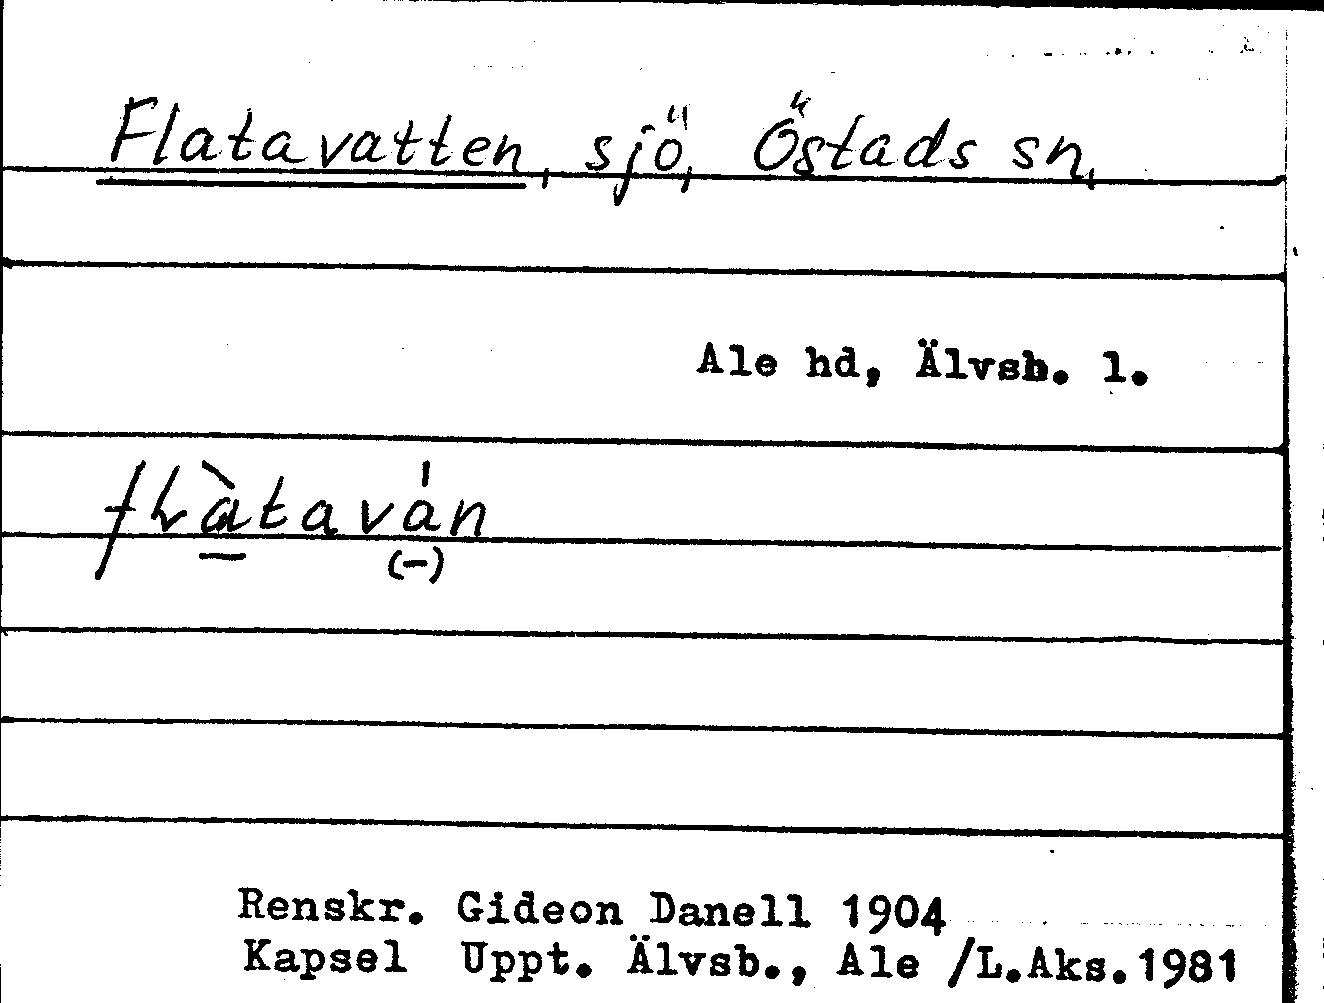 Flatavatten, sjö, Östads sn,
Ale hd, Älvsb. l.
fɫàtaván
(-)
Renskr. Gideon Danell 1904
Kapsel Uppt. Älvsb., Ale /L.Aks.1981